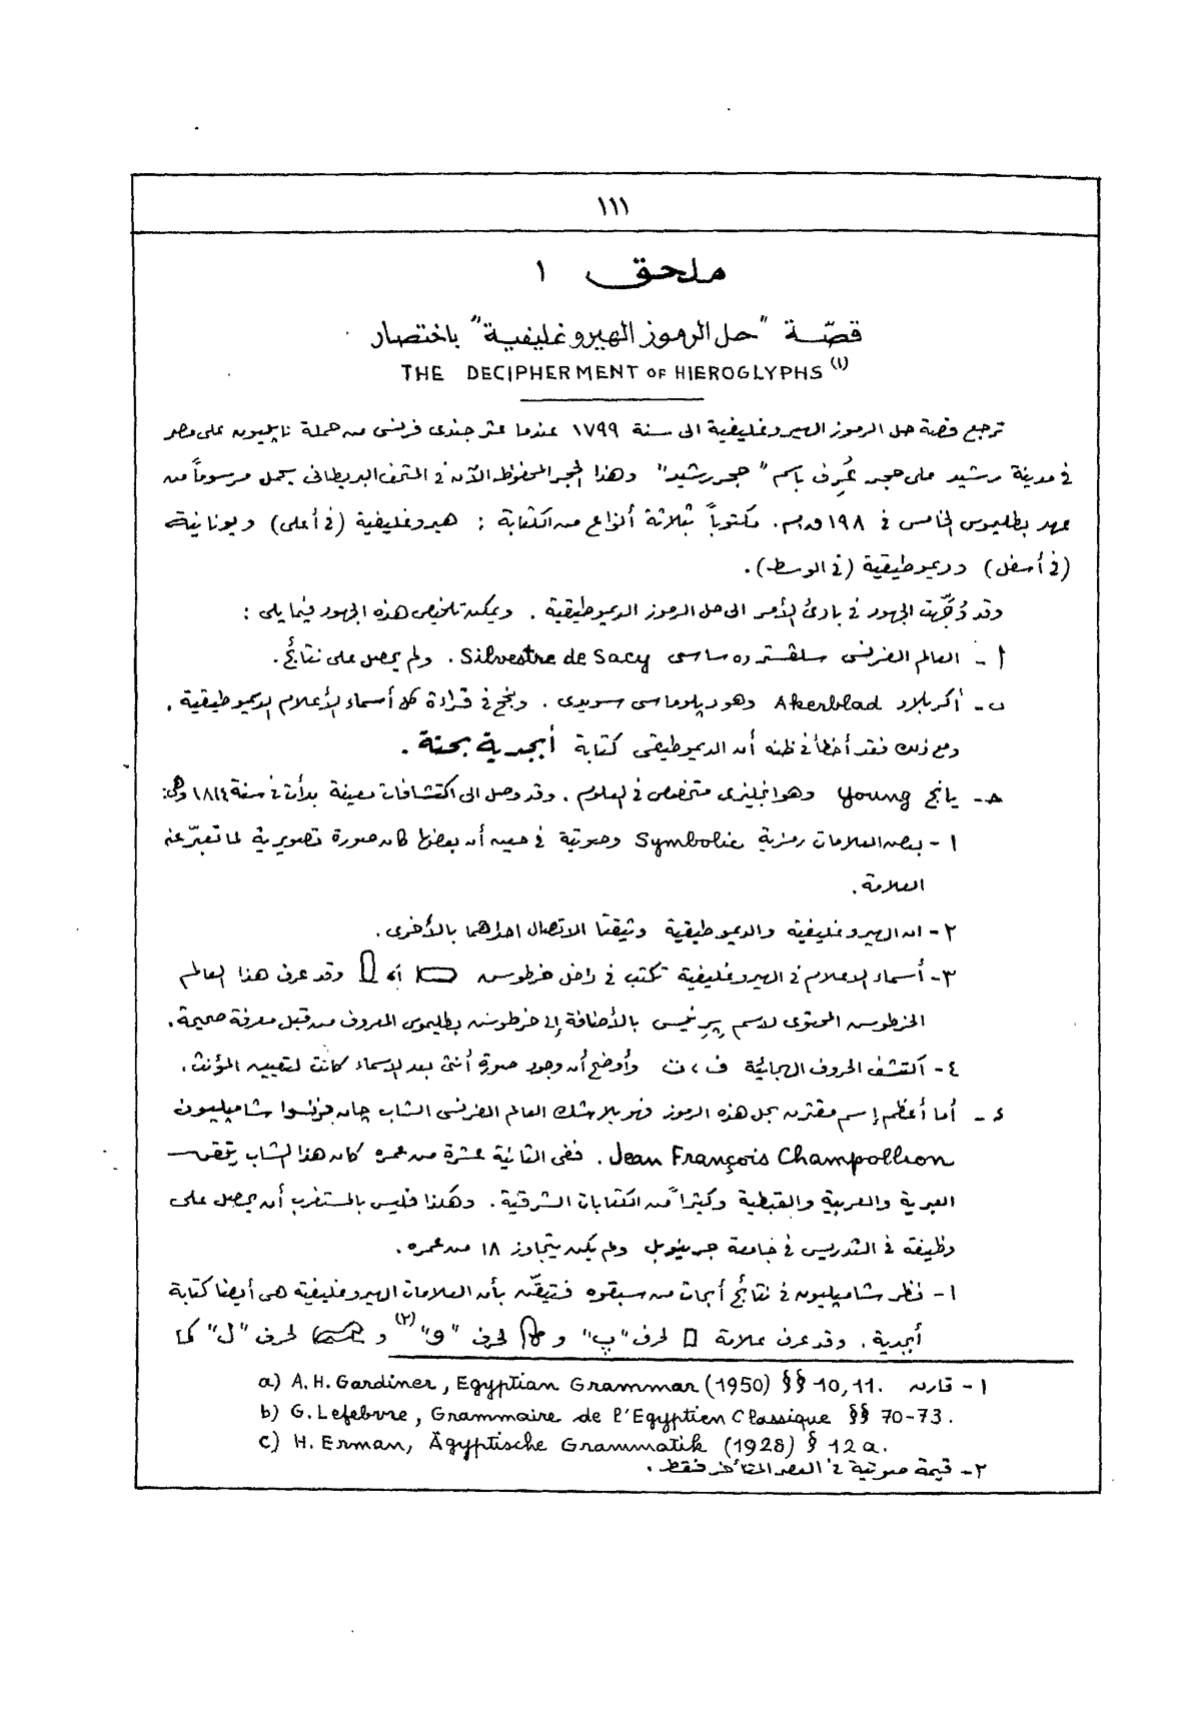 ١١١
ملحق ١
قصّة "حل الرموز الهيروغليفية" باختصار
THE DECIPHERMENT OF HIEROGLYPHS (١)
ترجع قصة حل الرموز الهيروغليفية الى سنة ١٧٩٩ عندما عثر جندى فرنسى من حملة نابليون على مصر
فى مدينة رشيد على حجر عُرِف باسم "حجر رشيد" وهذا الحجر المحفوظ الآن فى المتحف البريطانى يحمل مرسوماً من
عهد بطليموس الخامس فى ١٩٨ ق.م. مكتوباً بثلاثة أنواع من الكتابة : هيروغليفية (فى أعلى) ويونانية
(فى أسفل) وديموطيقية (فى الوسط).
وقد وُجِّهت الجهود فى بادئ الأمر الى حل الرموز الديموطيقية . ويمكن تلخيص هذه الجهود فيما يلى :
أ - العالم الفرنسى سلڤستر ده ساسى Silvestre de Sacy . ولم يحصل على نتائج.
ب - أكربلاد Akerblad وهو دپلوماسى سويدى . ونجح فى قراءة كل أسماء الأعلام الديموطيقية .
ومع ذلك فقد أخطأ فى ظنه أن الديموطيقى كتابة أبجدية بحتة .
حـ - يانج Young وهو انجليزى متخصص فى العلوم . وقد وصل الى اكتشافات معينة بدأت فى سنة ١٨١٤ وهى:
١ - بعض العلامات رمزية Symbolic وصوتية فى حين أن بعضها كان صورة تصويرية لما تعبّر عنه
العلامة .
٢ - ان الهيروغليفية والديموطيقية وثيقتا الاتصال احداهما بالأخرى .
٣ - أسماء الاعلام فى الهيروغليفية تكتب فى داخل خرطوش أو وقد عرف هذا العالم
الخرطوش المحتوى لاسم بِرِنيس بالأضافة إلى خرطوش بطليموس المعروف من قبل معرفة صحيحة .
٤ - اكتشف الحروف الهجائية ف ، ت وأوضح أن وجود صورة أنثى بعد الاسماء كانت لتعيين المؤنث .
د - أما أعظم إسم مقترن بحل هذه الرموز فهو بلا شك العالم الفرنسى الشاب چان فرنسوا شامپليون
Jean François Champollion . ففى الثانية عشرة من عمره كان هذا الشاب يتقن
العبرية والعربية والقبطية وكثيراً من الكتابات الشرقية . وهكذا فليس بالمستغرب أن يحصل على
وظيفة فى التدريس فى جامعة جرينوبل ولم يكن يتجاوز ١٨ من عمره .
١ - نظر شامپليون فى نتائج أبحاث من سبقوه فتيقّن بأن العلامات الهيروغليفية هى أيضا كتابة
أبجدية . وقد عرف علامة لحرف "پ" و لحرف "و" (٢) و لحرف "ل" كما
١ - قارن a) A. H. Gardiner, Egyptian Grammar (1950) §§ 10, 11.
b) G. Lefebvre, Grammaire de l'Egyptien Classique §§ 70-73.
c) H. Erman, Ägyptische Grammatik (1928) § 12 a.
٢ - قيمة صوتية فى العصر المتأخر فقط .